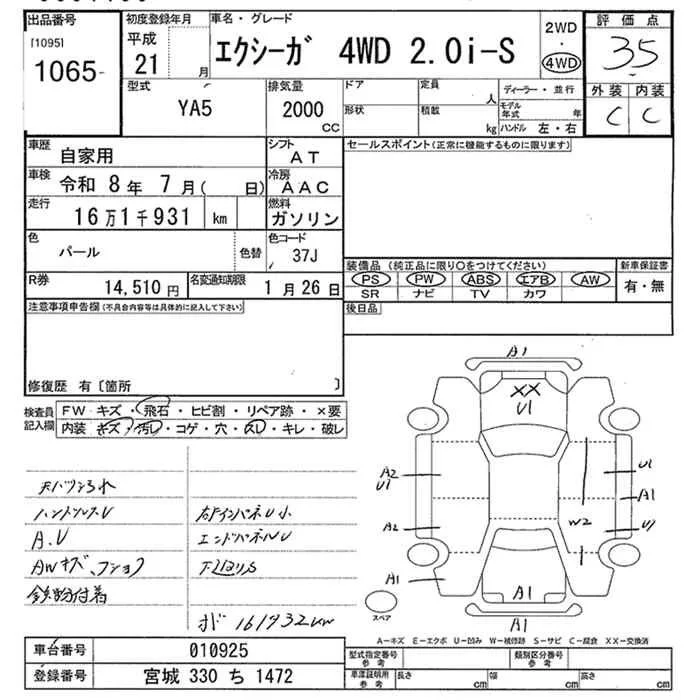 出品番号
[1095]
1065-
初度登録年月
平成
21 月
車名・グレード
エクシーガ 4WD 2.0i-S
2WD
・
4WD
評価点
3.5
外装 内装
C C
型式
YA5
排気量
2000
CC
ドア
形状
定員
人
積載
kg
ディーラー・並行
モデル年式 年
ハンドル 左・右
車歴
自家用
シフト
AT
セールスポイント(正常に機能するものに限ります)
車検
令和 8年 7月( 日)
冷房
AAC
走行
16万1千931 km
燃料
ガソリン
色
パール
色替
色コード
37J
装備品 (純正品に限り○をつけてください)
新車保証書
PS PW ABS エアB AW
有・無
SR ナビ TV カワ
R券
14,510 円
名変通知期限
1月26日
注意事項申告欄(不具合内容等は具体的に記入して下さい)
後日品
修復歴 有〔箇所 〕
検査員
記入欄
FW キズ・飛石・ヒビ割・リペア跡・×要
内装 キズ・汚レ・コゲ・穴・スレ・キレ・破レ
A1
XX
U1
A2
U1
U1
A1
A2
W2
U1
A1
A1
A1
スペア
A.U
エンドパネルU
下回りS
鉄粉付着
161932km
A-キズ E-エクボ U-凹み W-補修跡 S-サビ C-腐食 XX-交換済
車台番号
010925
型式指定番号
参考
類別区分番号
参考
登録番号
宮城 330 ち 1472
車庫証明用
参考
長さ cm
幅 cm
高さ cm